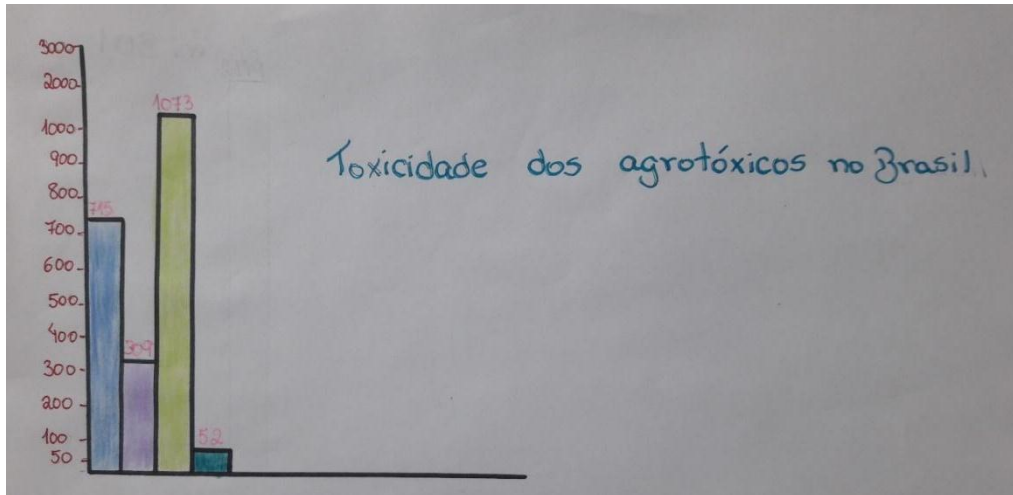 3000
2000
1000
900
800
700
600
500
400
300
200
100
50
715
309
1073
52
Toxicidade dos agrotóxicos no Brasil.